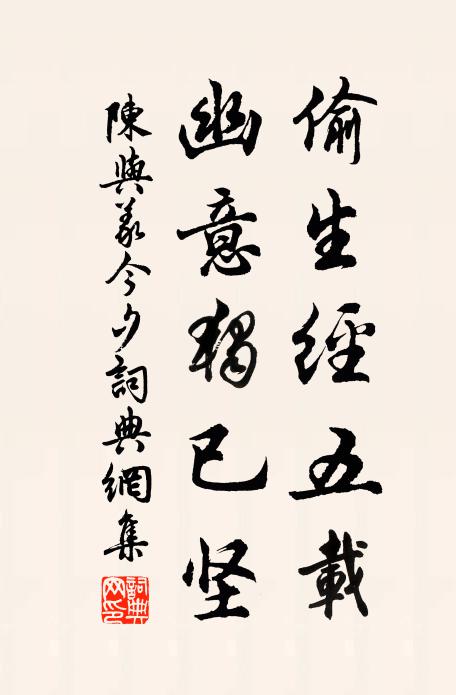 偷生經五載
幽意獨已坚
陳與義今夕詞典網集
詞典网印